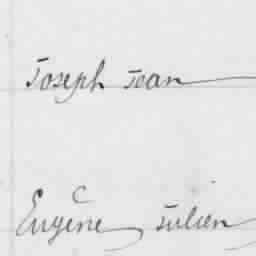 Joseph Jean
Eugène Julien